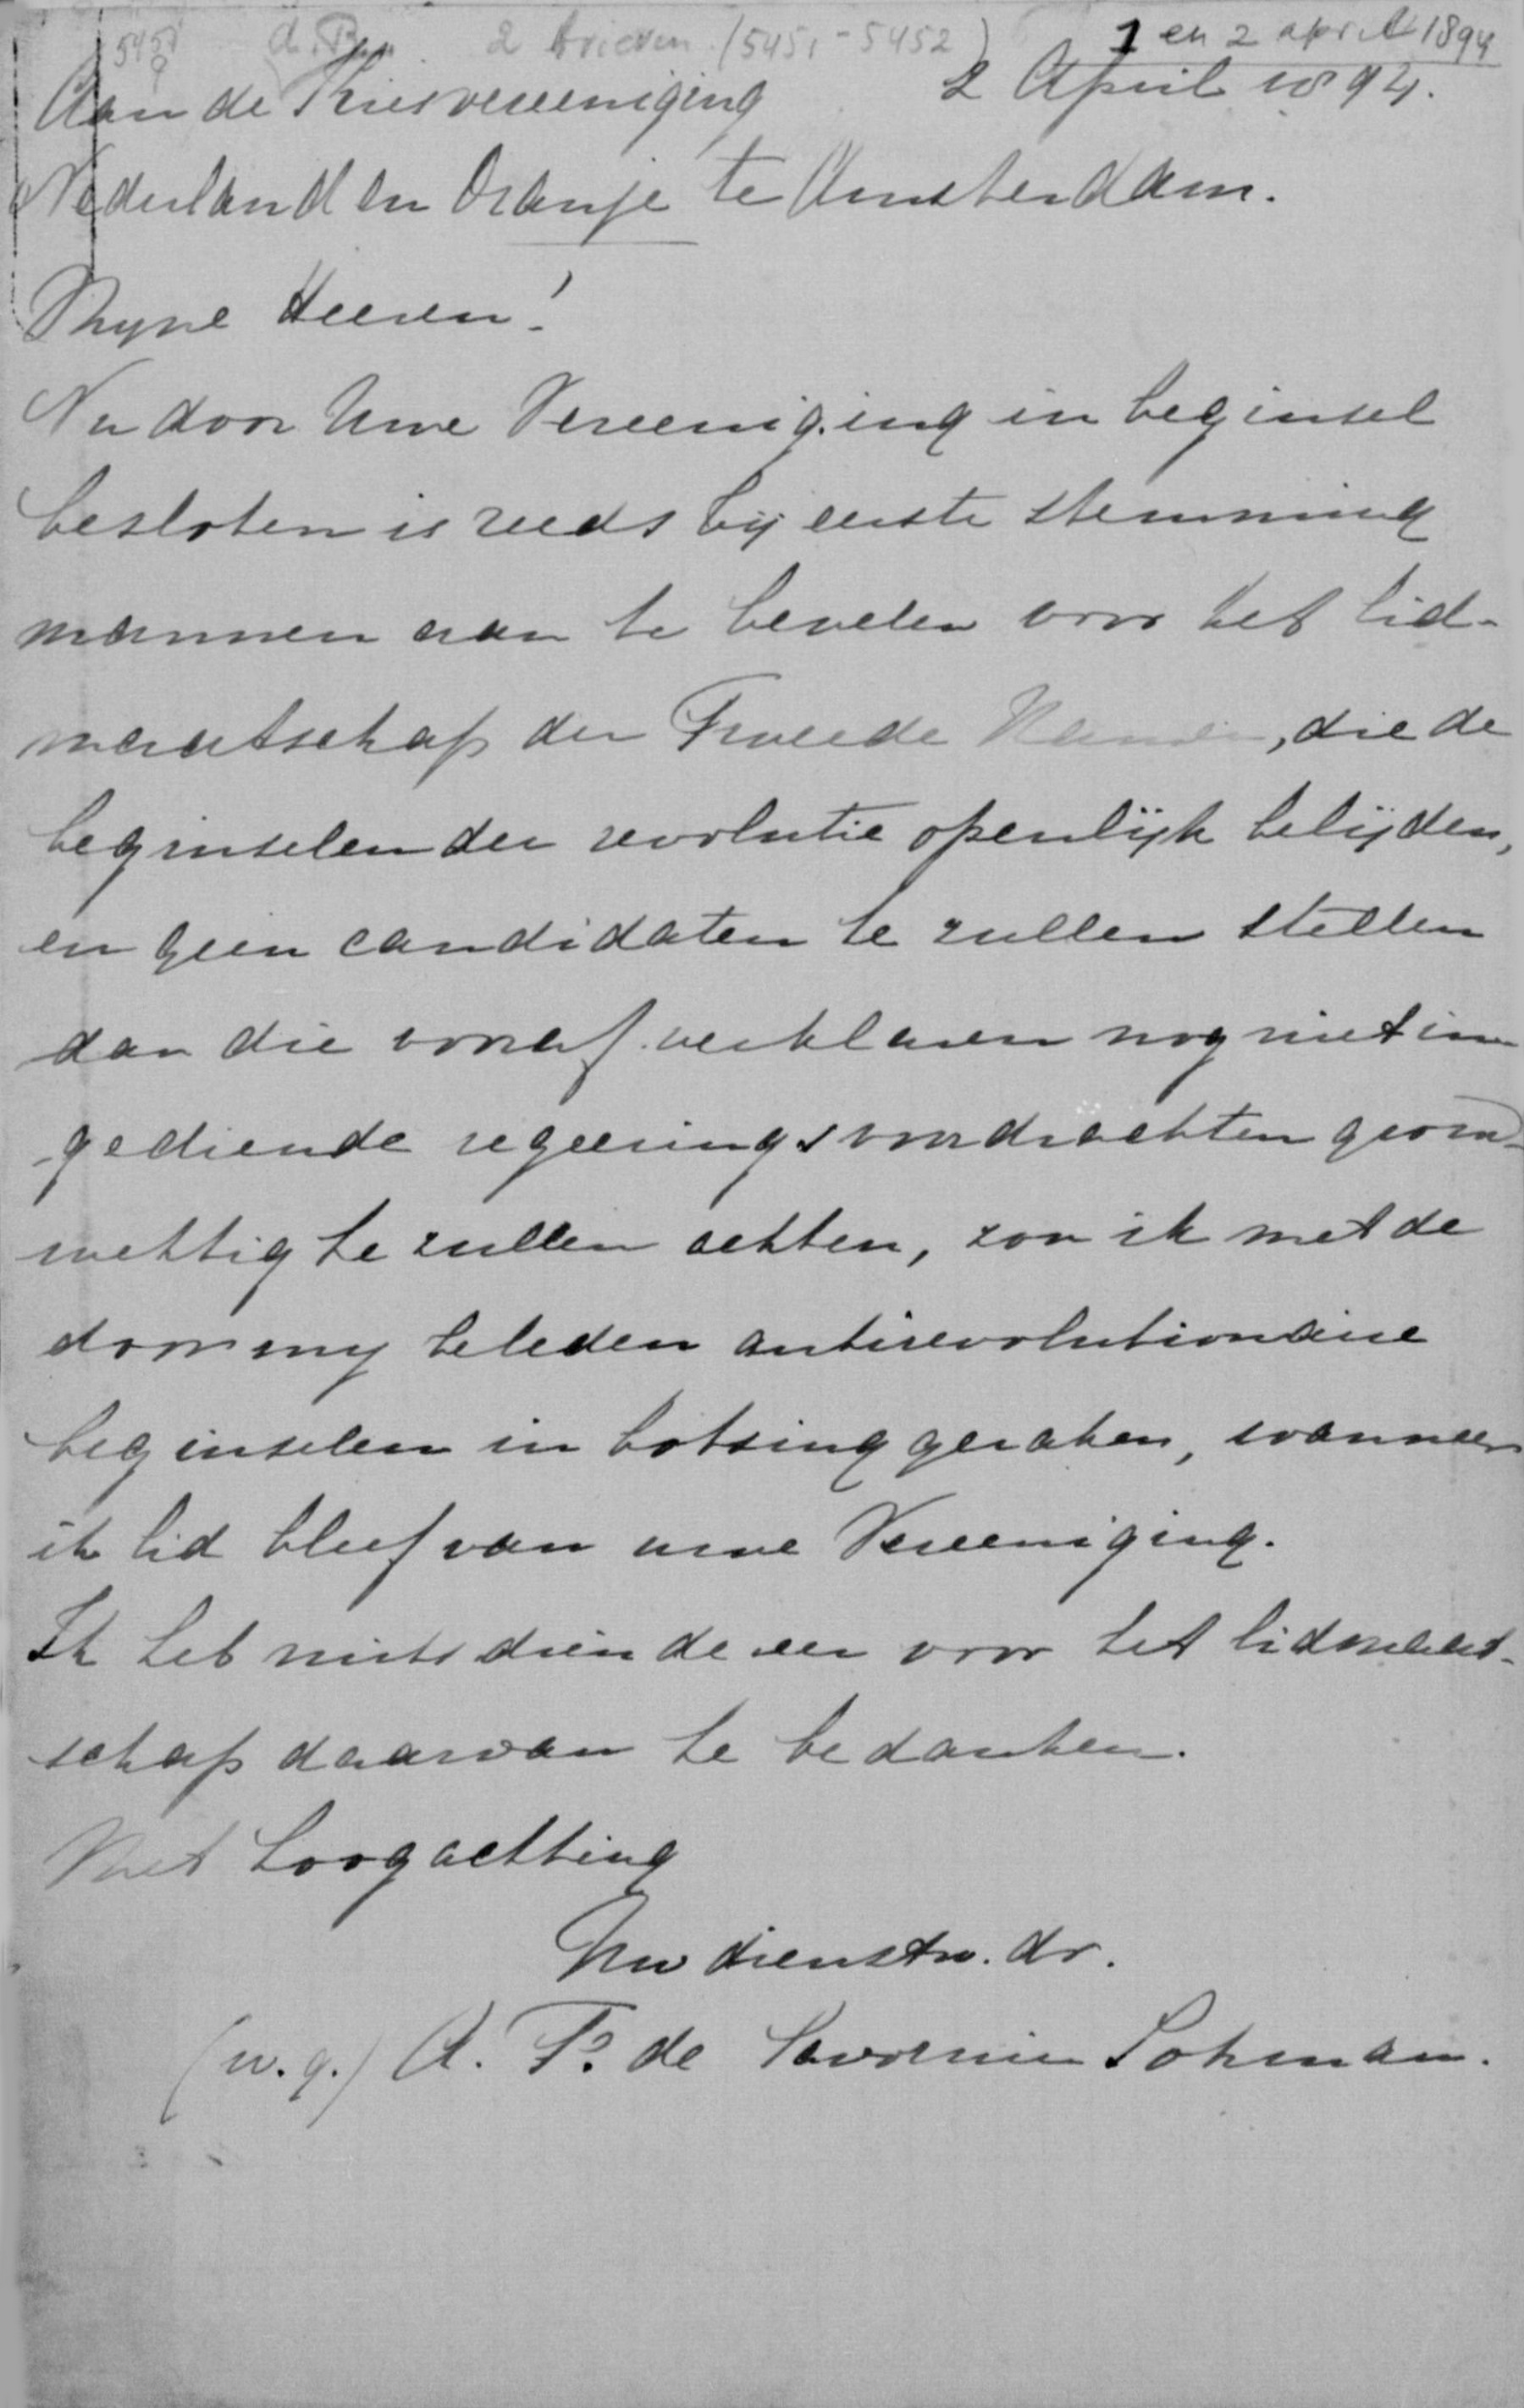 5451 2 brieven (5451-5452) 1 en 2 april 1894
Aan de Kiesvereeniging 2 April 1894.
Nederland en Oranje te Amsterdam.
Myne Heeren!
Nu door Uwe Vereeniging in beginsel
besloten is reeds bij eerste stemming
mannen aan te bevelen voor het lid-
maatschap der Tweede Kamer, die de
beginselen der revolutie openlijk belijden,
en geen candidaten te zullen stellen
dan die vooraf verklaren nog niet in-
gediende regeeringsvoordrachten grond-
wettig te zullen achten, zou ik met de
door my beleden antirevolutionaire
beginselen in botsing geraken, wanneer
ik lid bleef van uwe Vereeniging.
Ik heb mitsdien de eer voor het lidmaat-
schap daarvan te bedanken.
Met hoogachting
Uw dienstw. dr.
(w.g.) A. F. de Savornin Lohman.